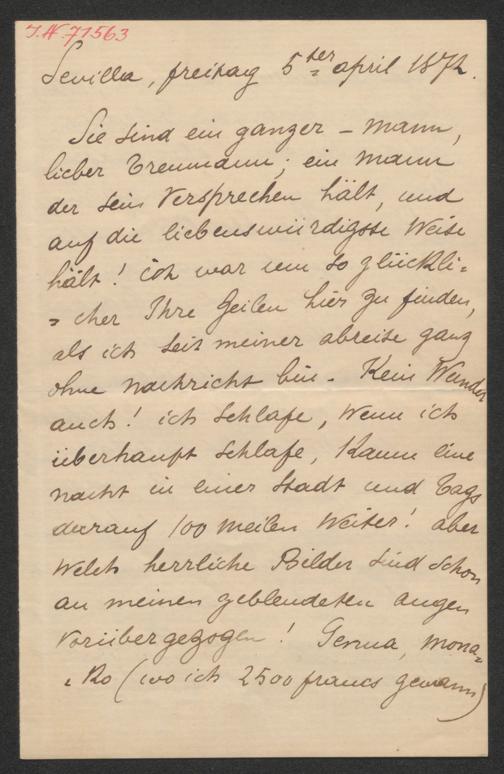 I.N. 71563
Sevilla, freitag 5ter april 1872.
Sie sind ein ganzer – mann,
lieber Treumann; ein mann
der sein Versprechen hält, und
auf die liebenswürdigste Weise
hält! ich war um so glückli=
= cher Ihre Zeilen hier zu finden,
als ich seit meiner abreise ganz
ohne nachricht bin. Kein Wunder
auch! ich schlafe, wenn ich
überhaupt schlafe, kaum eine
nacht in einer stadt und tags
darauf 100 meilen weiter! aber
welch herrliche Bilder sind schon
an meinen geblendeten augen
vorübergezogen! Genua, mona=
= ko (wo ich 2500 francs gewann)